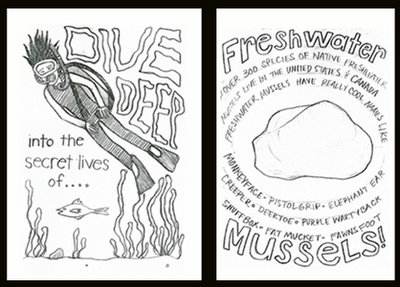 DIVE
DEEP
into the
secret lives
of....
Freshwater
OVER 300 SPECIES OF NATIVE FRESHWATER
MUSSELS LIVE IN THE UNITED STATES & CANADA
FRESHWATER MUSSELS HAVE REALLY COOL NAMES LIKE
MONKEYFACE • PISTOLGRIP • ELEPHANT EAR
CREEPER • DEERTOE • PURPLE WARTYBACK
SNUFFBOX • FAT MUCKET • FAWNSFOOT
Mussels!